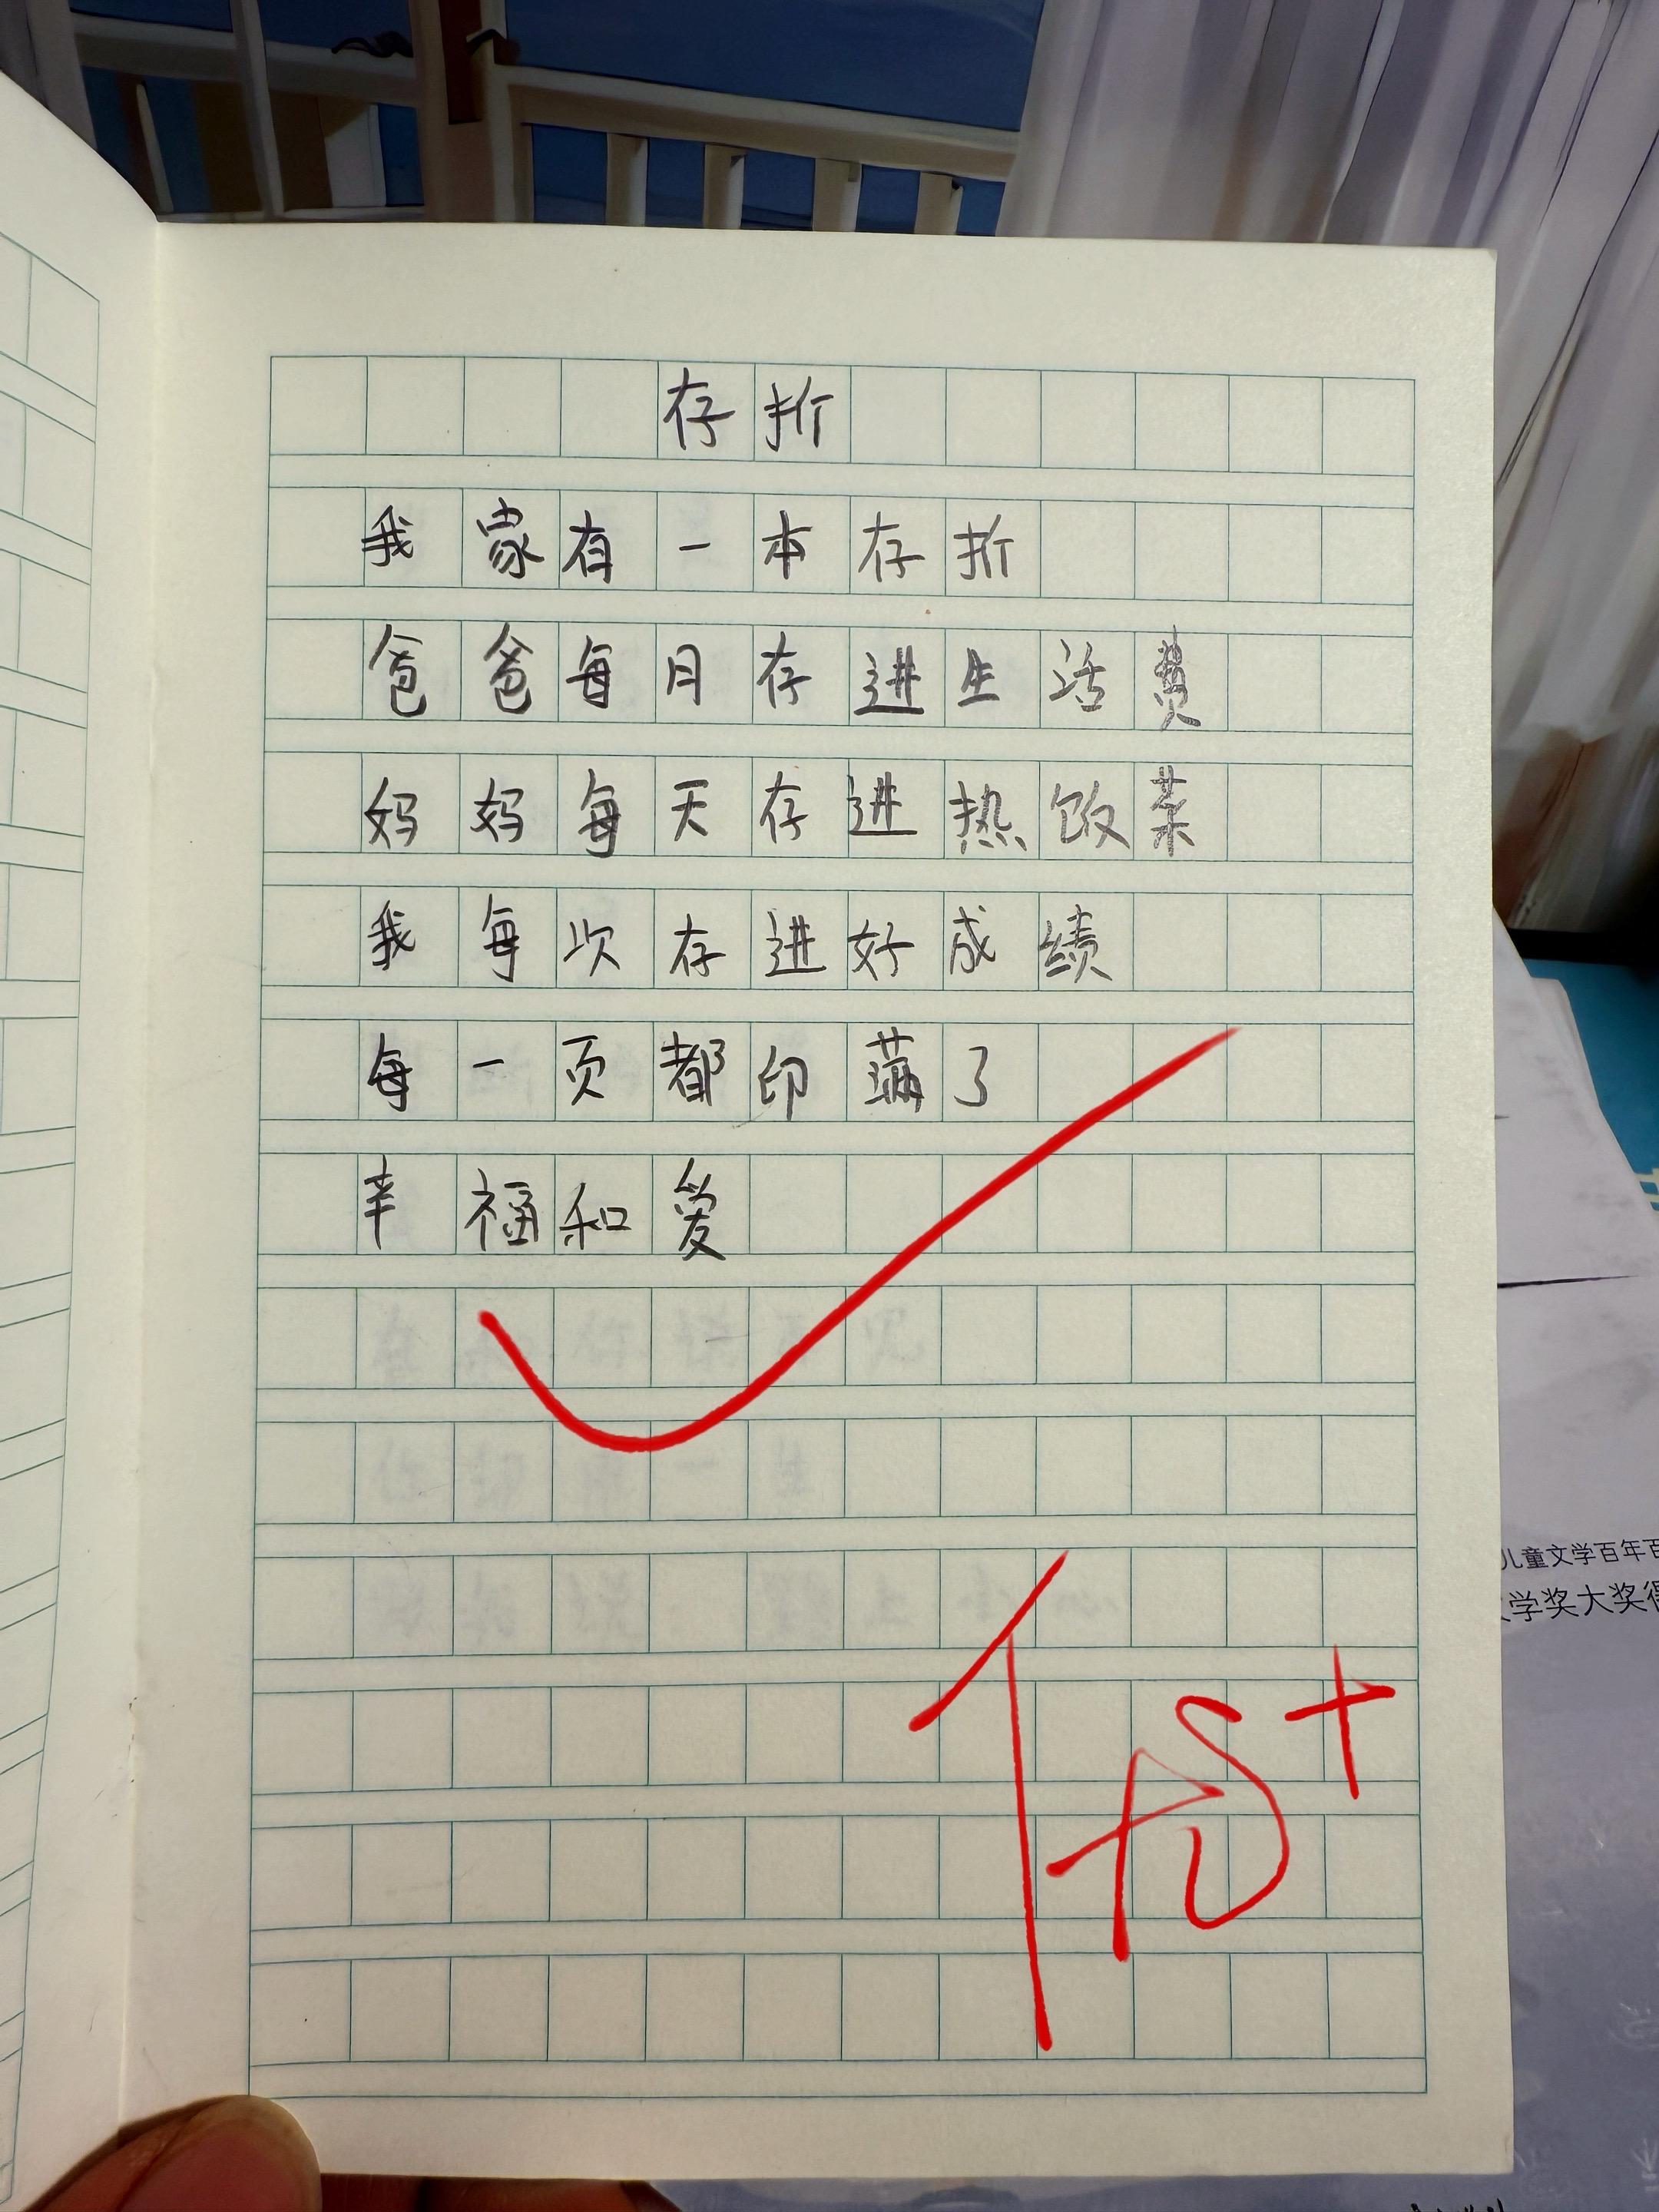 存折
我家有一本存折
爸爸每月存进生活费
妈妈每天存进热饭菜
我每次存进好成绩
每一页都印满了
幸福和爱
优+
儿童文学百年百
文学奖大奖得